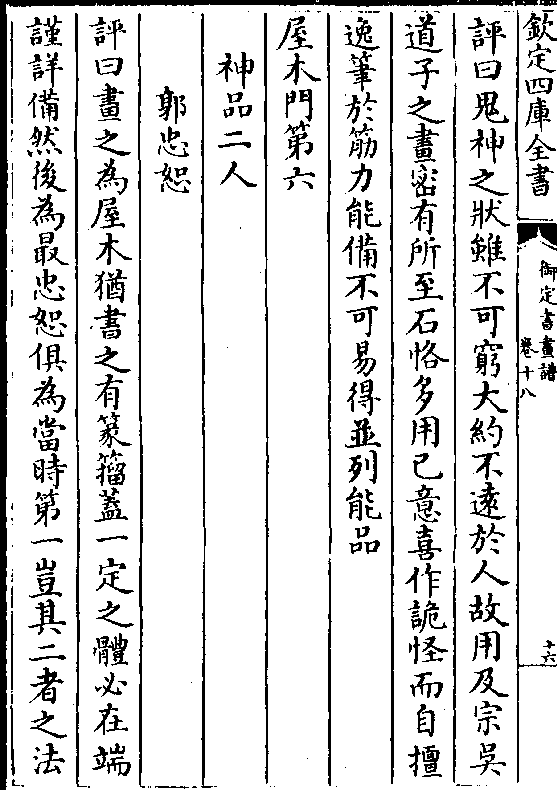 欽定四庫全書
御定書畫譜
卷十八
十六
評曰鬼神之狀雖不可窮大約不遠於人故用及宗吳
道子之畫密有所至石恪多用己意喜作詭怪而自擅
逸筆於筋力能備不可易得並列能品
屋木門第六
神品二人
郭忠恕
評曰畫之為屋木猶書之有篆籀蓋一定之體必在端
謹詳備然後為最忠恕俱為當時第一豈其二者之法